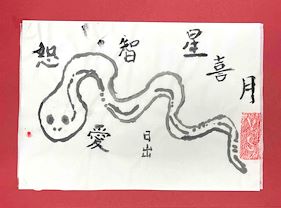 恕
智
星
喜
月
愛
日出